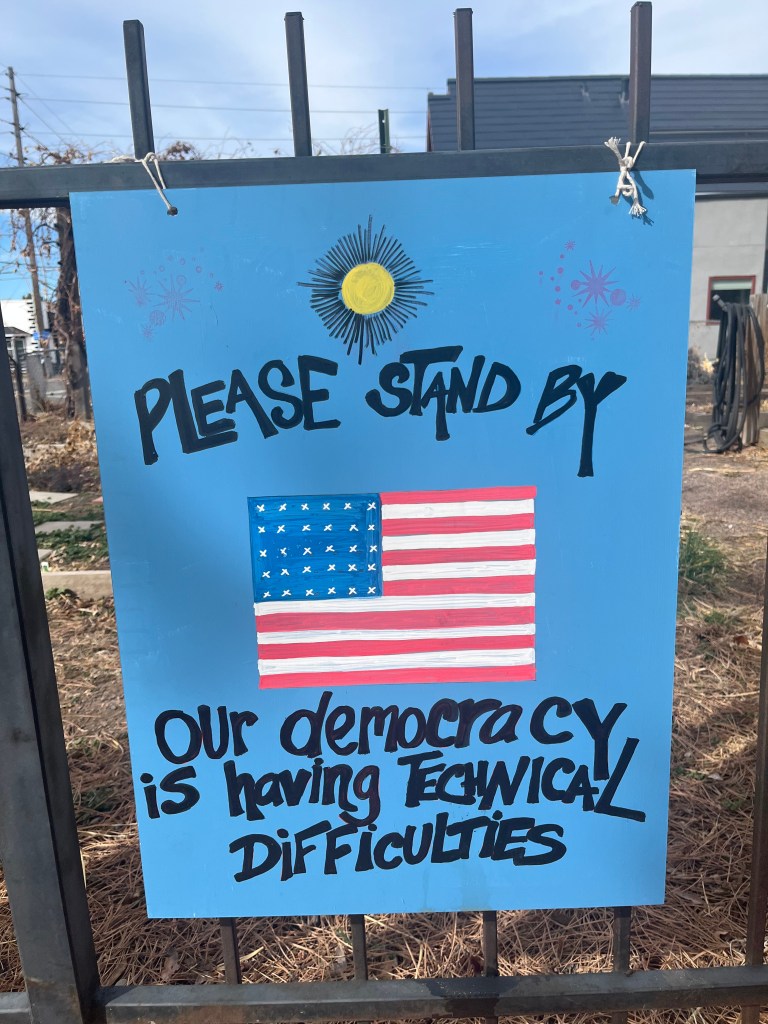 PLEASE STAND BY
OUR democracy
is having TECHNICAL
DIFFICULTIES